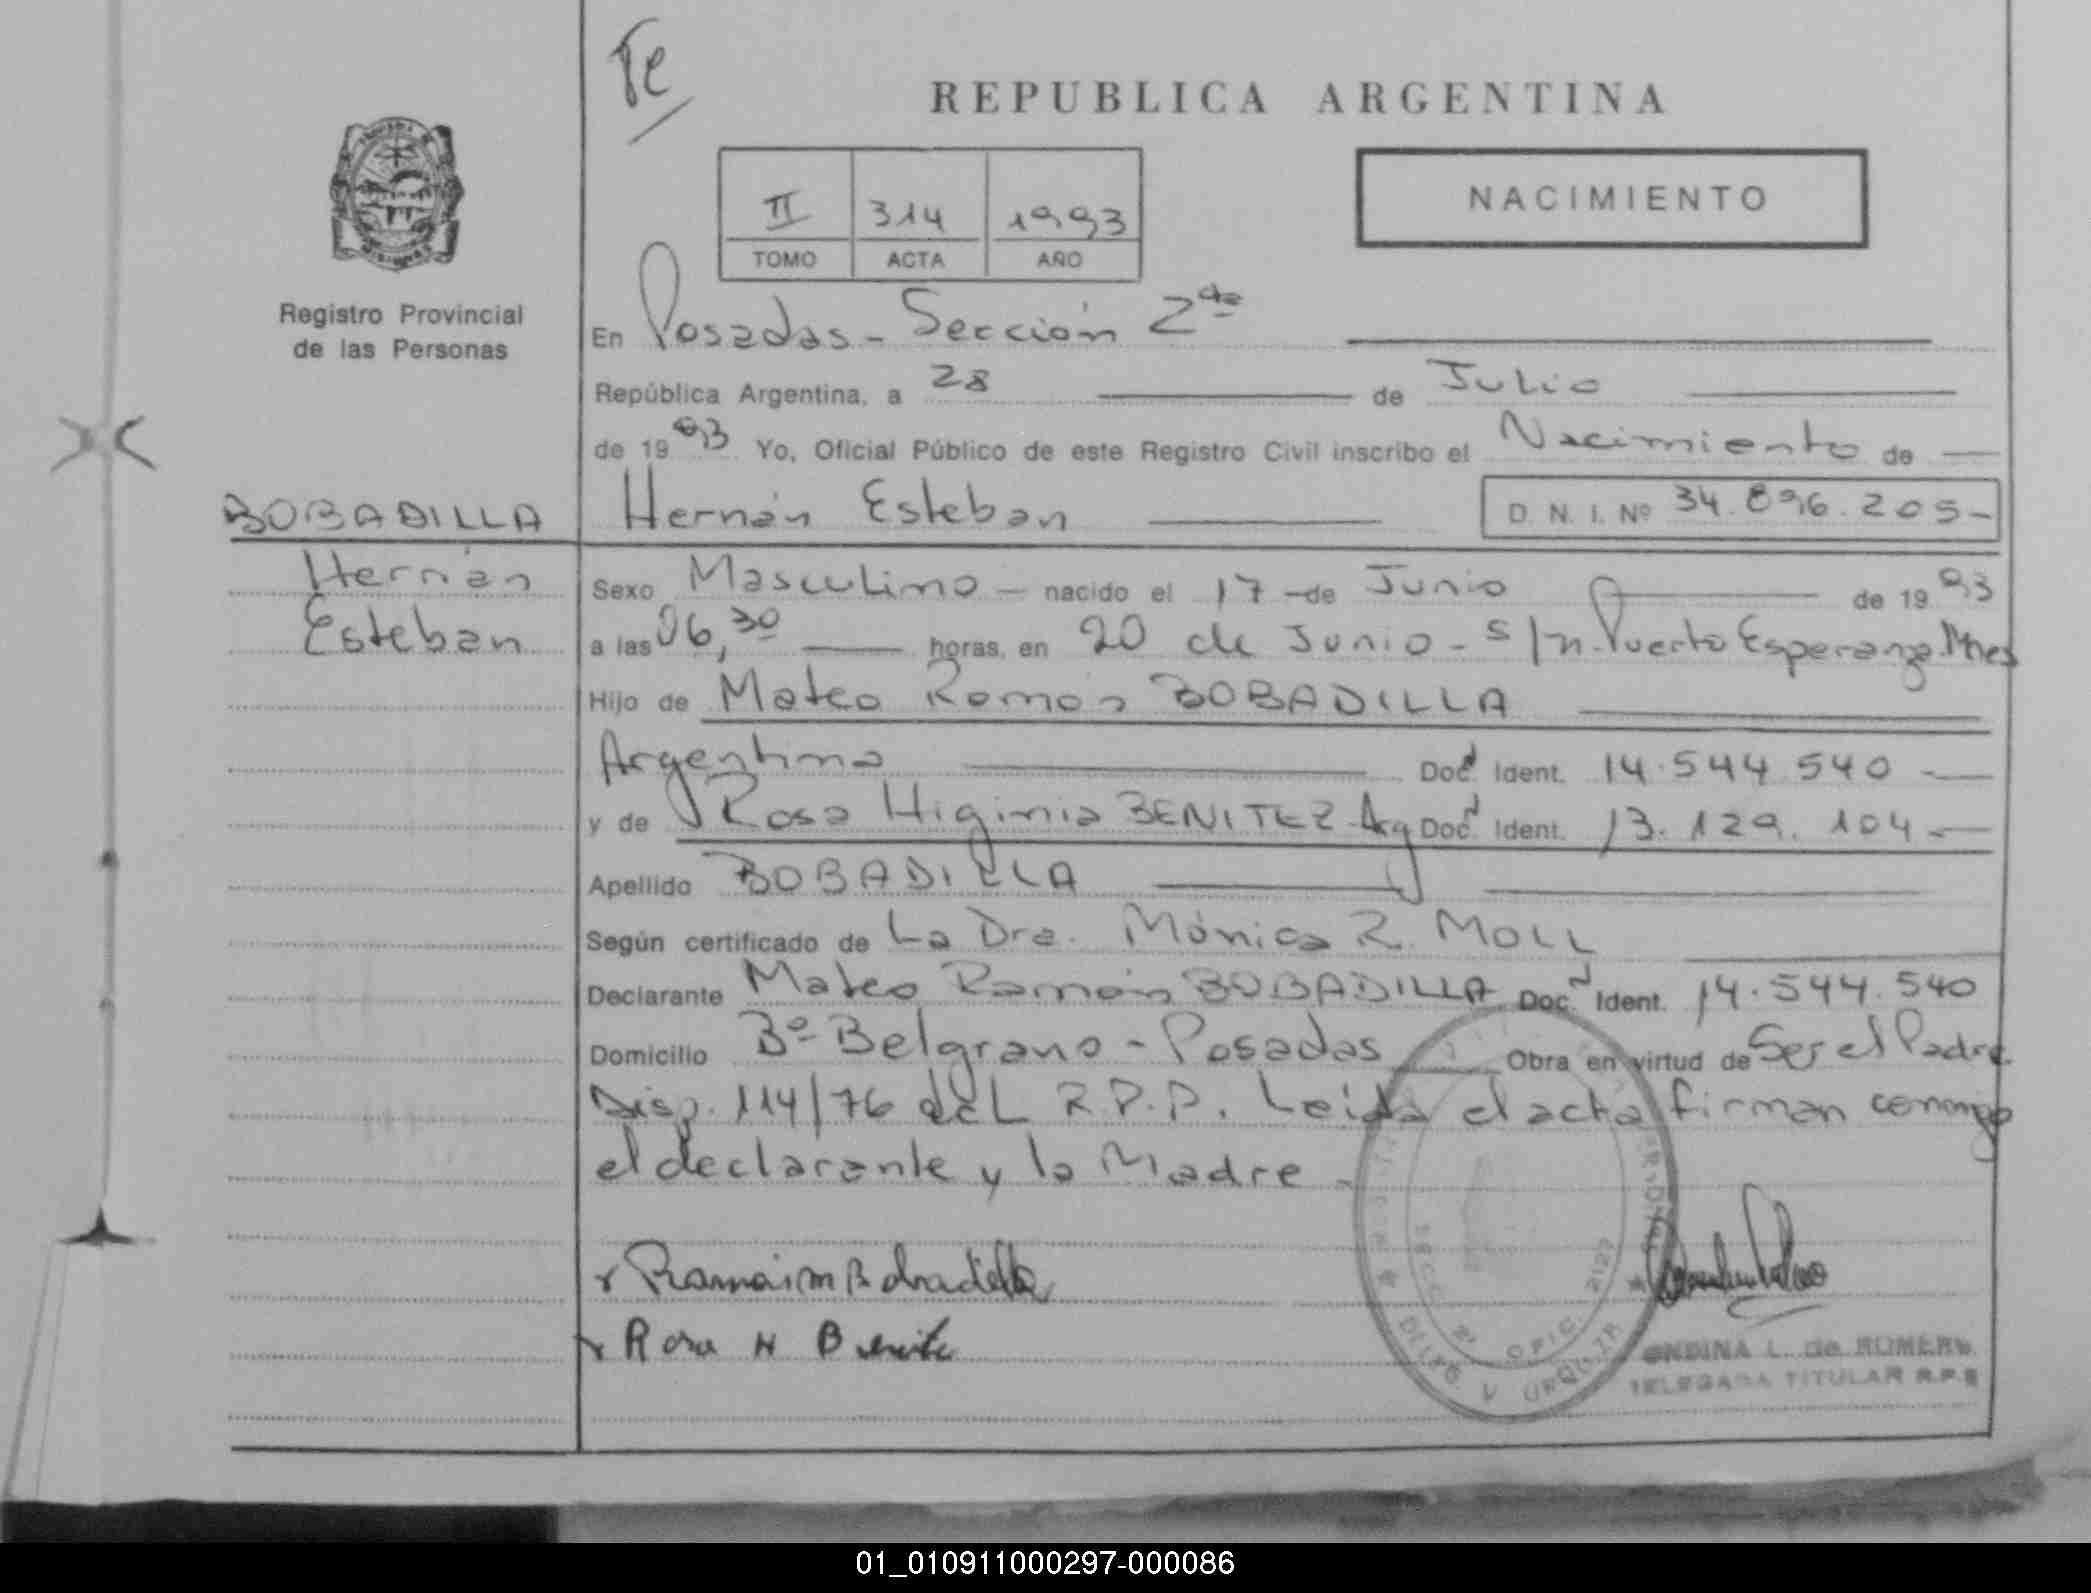 Te
REPUBLICA ARGENTINA
II 314 1993
TOMO ACTA AÑO
NACIMIENTO
Registro Provincial
de las Personas
En Posadas - Sección 2da
República Argentina, a 28 de Julio
de 1993 Yo, Oficial Público de este Registro Civil inscribo el Nacimiento de
BOBADILLA Hernán Esteban D. N. I. Nº 34.896.205-
Hernán
Esteban
Sexo Masculino - nacido el 17 -de Junio de 1993
a las 06,30 horas, en 20 de Junio - s/n. Puerto Esperanza. Mnes
Hijo de Mateo Ramón BOBADILLA
Argentino Doc. Ident. 14.544.540
y de Rosa Higinia BENITEZ - Arg Doc. Ident. 13.129.104
Apellido BOBADILLA
Según certificado de La Dra. Mónica R. MOLL
Declarante Mateo Ramón BOBADILLA Doc. Ident. 14.544.540
Domicilio Bº Belgrano - Posadas Obra en virtud de Ser el Padre
Disp. 114/76 del R.P.P. Leída el acta firman conmigo
el declarante y la Madre.
Ramón M Bobadilla
Rosa H Benite
SECC. 2ª OFIC. 2127
URQUIZA
ONDINA L. de ROMERO
DELEGADA TITULAR R.P.P.
01_010911000297-000086